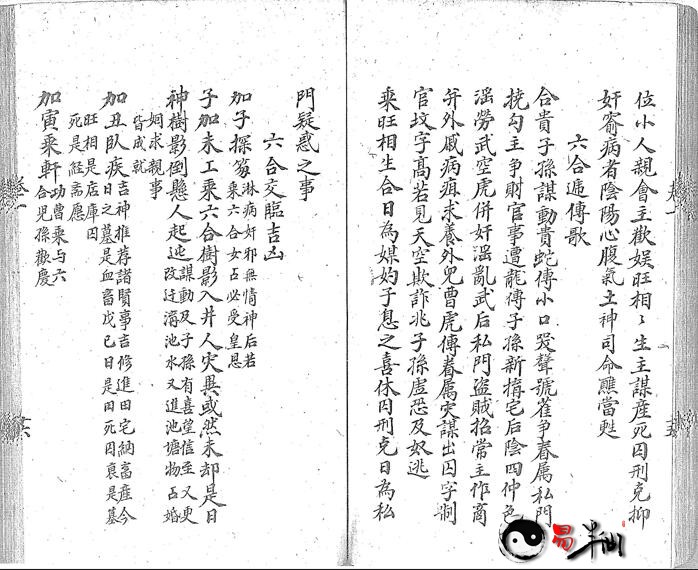 位小人親會主歡娛旺相〻生主謀產死囚刑克抑
奸竊病者陰陽心腹氣土神司命醮當甦
六合遞傳歌
合貴子孫謀動貴蛇傳小口哭聲號雀爭眷屬私門
撓勾主爭財官事遭龍傳子孫新搆宅后陰四仲色
淫勞武空虎併奸淫亂武后私門盜賊招常主作商
并外戚病疽求養外兒曹虎傳眷屬灾謀出囚字制
官坟字高若見天空欺詐兆子孫虛恐及奴逃
乘旺相生合日為媒妁子息之喜休囚刑克日為私
門疑惑之事
六合交臨吉凶
加子探笏淋病奸邪無情神后若乘六合女占必受皇恩
子加未工乘六合樹影入井人灾異或然未却是日
神樹影倒懸人起迯謀動及子孫有喜望信至又更改迁溝池水又進池塘物占婚
姻求親事皆成就
加丑臥疾吉神推荐諸賢事吉修進田宅納畜產今日之墓是血畜戊己日是囚死囚衰是墓
旺相是店庫囚死是經斋愿
加寅乘軒功曹乘与六合兒孫歡慶
卷一
五
卷一
六
易